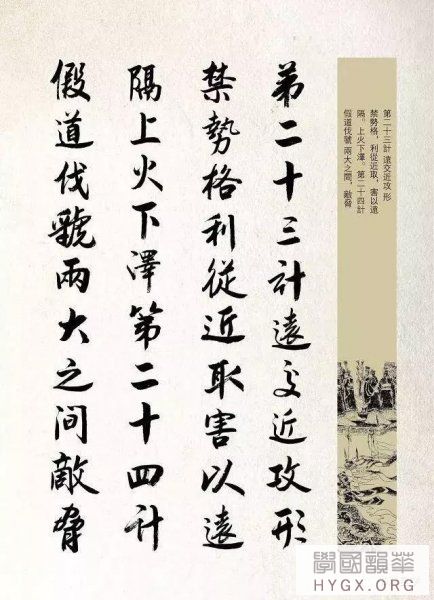 第二十三計遠交近攻形
禁勢格利從近取害以遠
隔上火下澤第二十四計
假道伐虢兩大之間敵脅
第二十三計 遠交近攻 形
禁勢格，利從近取，害以遠
隔。上火下澤。第二十四計
假道伐虢 兩大之間，敵脅
學國韻華
HYGX.ORG